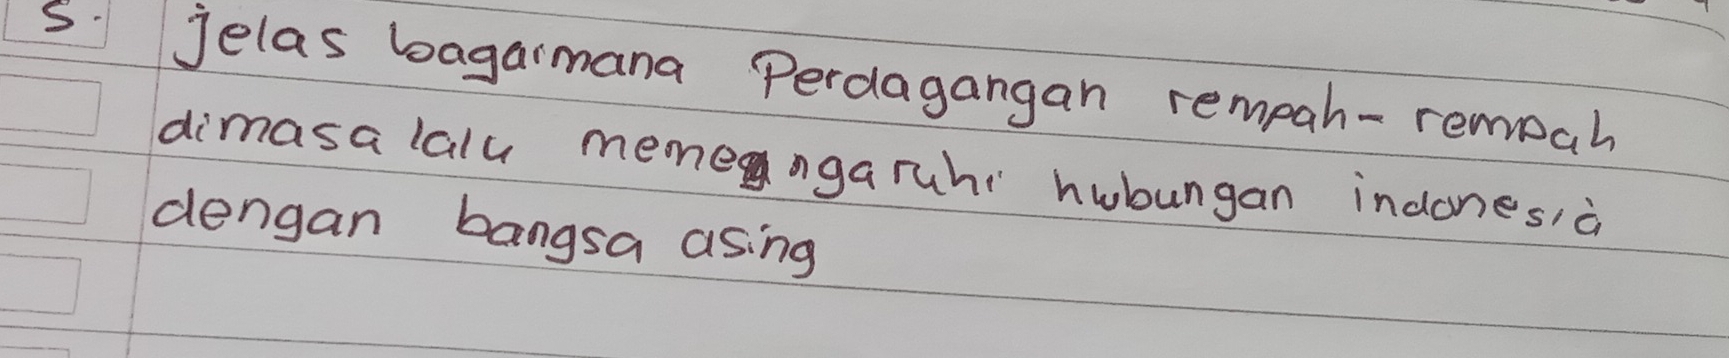 5. jelas bagaimana Perdagangan rempah-rempah
dimasa lalu memengaruhi hubungan indonesia
dengan bangsa asing